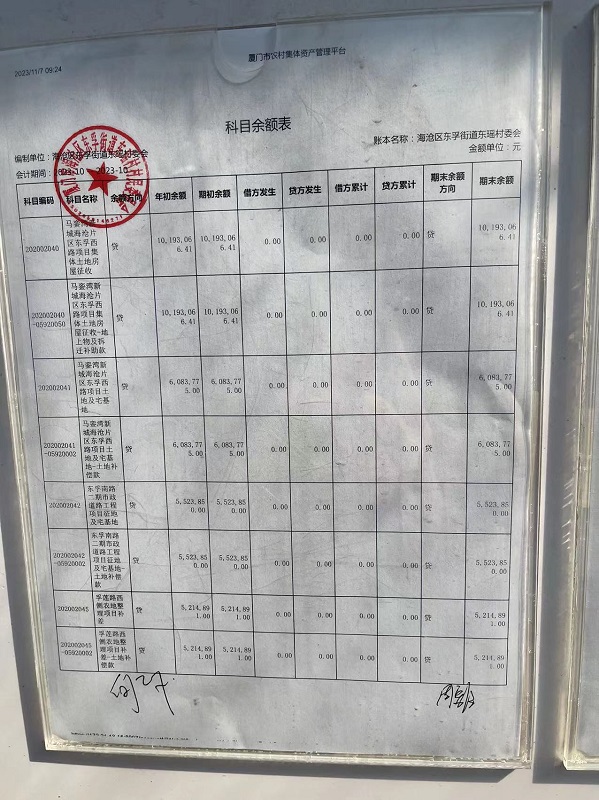 2023/11/7 09:24
厦门市农村集体资产管理平台
科目余额表
编制单位：海沧区东孚街道东瑶村委会
账本名称：海沧区东孚街道东瑶村委会
会计期间：2023-10 2023-10
金额单位：元
科目编码 科目名称 余额方向 年初余额 期初余额 借方发生 贷方发生 借方累计 贷方累计 期末余额方向 期末余额
202002040 马銮湾新城海沧片区东孚西路项目集体土地房屋征收 贷 10,193,066.41 10,193,066.41 0.00 0.00 0.00 0.00 贷 10,193,066.41
202002040-05920050 马銮湾新城海沧片区东孚西路项目集体土地房屋征收-地上物及拆迁补助款 贷 10,193,066.41 10,193,066.41 0.00 0.00 0.00 0.00 贷 10,193,066.41
202002041 马銮湾新城海沧片区东孚西路项目土地及宅基地 贷 6,083,775.00 6,083,775.00 0.00 0.00 0.00 0.00 贷 6,083,775.00
202002041-05920002 马銮湾新城海沧片区东孚西路项目土地及宅基地-土地补偿款 贷 6,083,775.00 6,083,775.00 0.00 0.00 0.00 0.00 贷 6,083,775.00
202002042 东孚南路二期市政道路工程项目征地及宅基地 贷 5,523,850.00 5,523,850.00 0.00 0.00 0.00 0.00 贷 5,523,850.00
202002042-05920002 东孚南路二期市政道路工程项目征地及宅基地-土地补偿款 贷 5,523,850.00 5,523,850.00 0.00 0.00 0.00 0.00 贷 5,523,850.00
202002045 孚莲路西侧农地整理项目补差 贷 5,214,891.00 5,214,891.00 0.00 0.00 0.00 0.00 贷 5,214,891.00
202002045-05920002 孚莲路西侧农地整理项目补差-土地补偿款 贷 5,214,891.00 5,214,891.00 0.00 0.00 0.00 0.00 贷 5,214,891.00